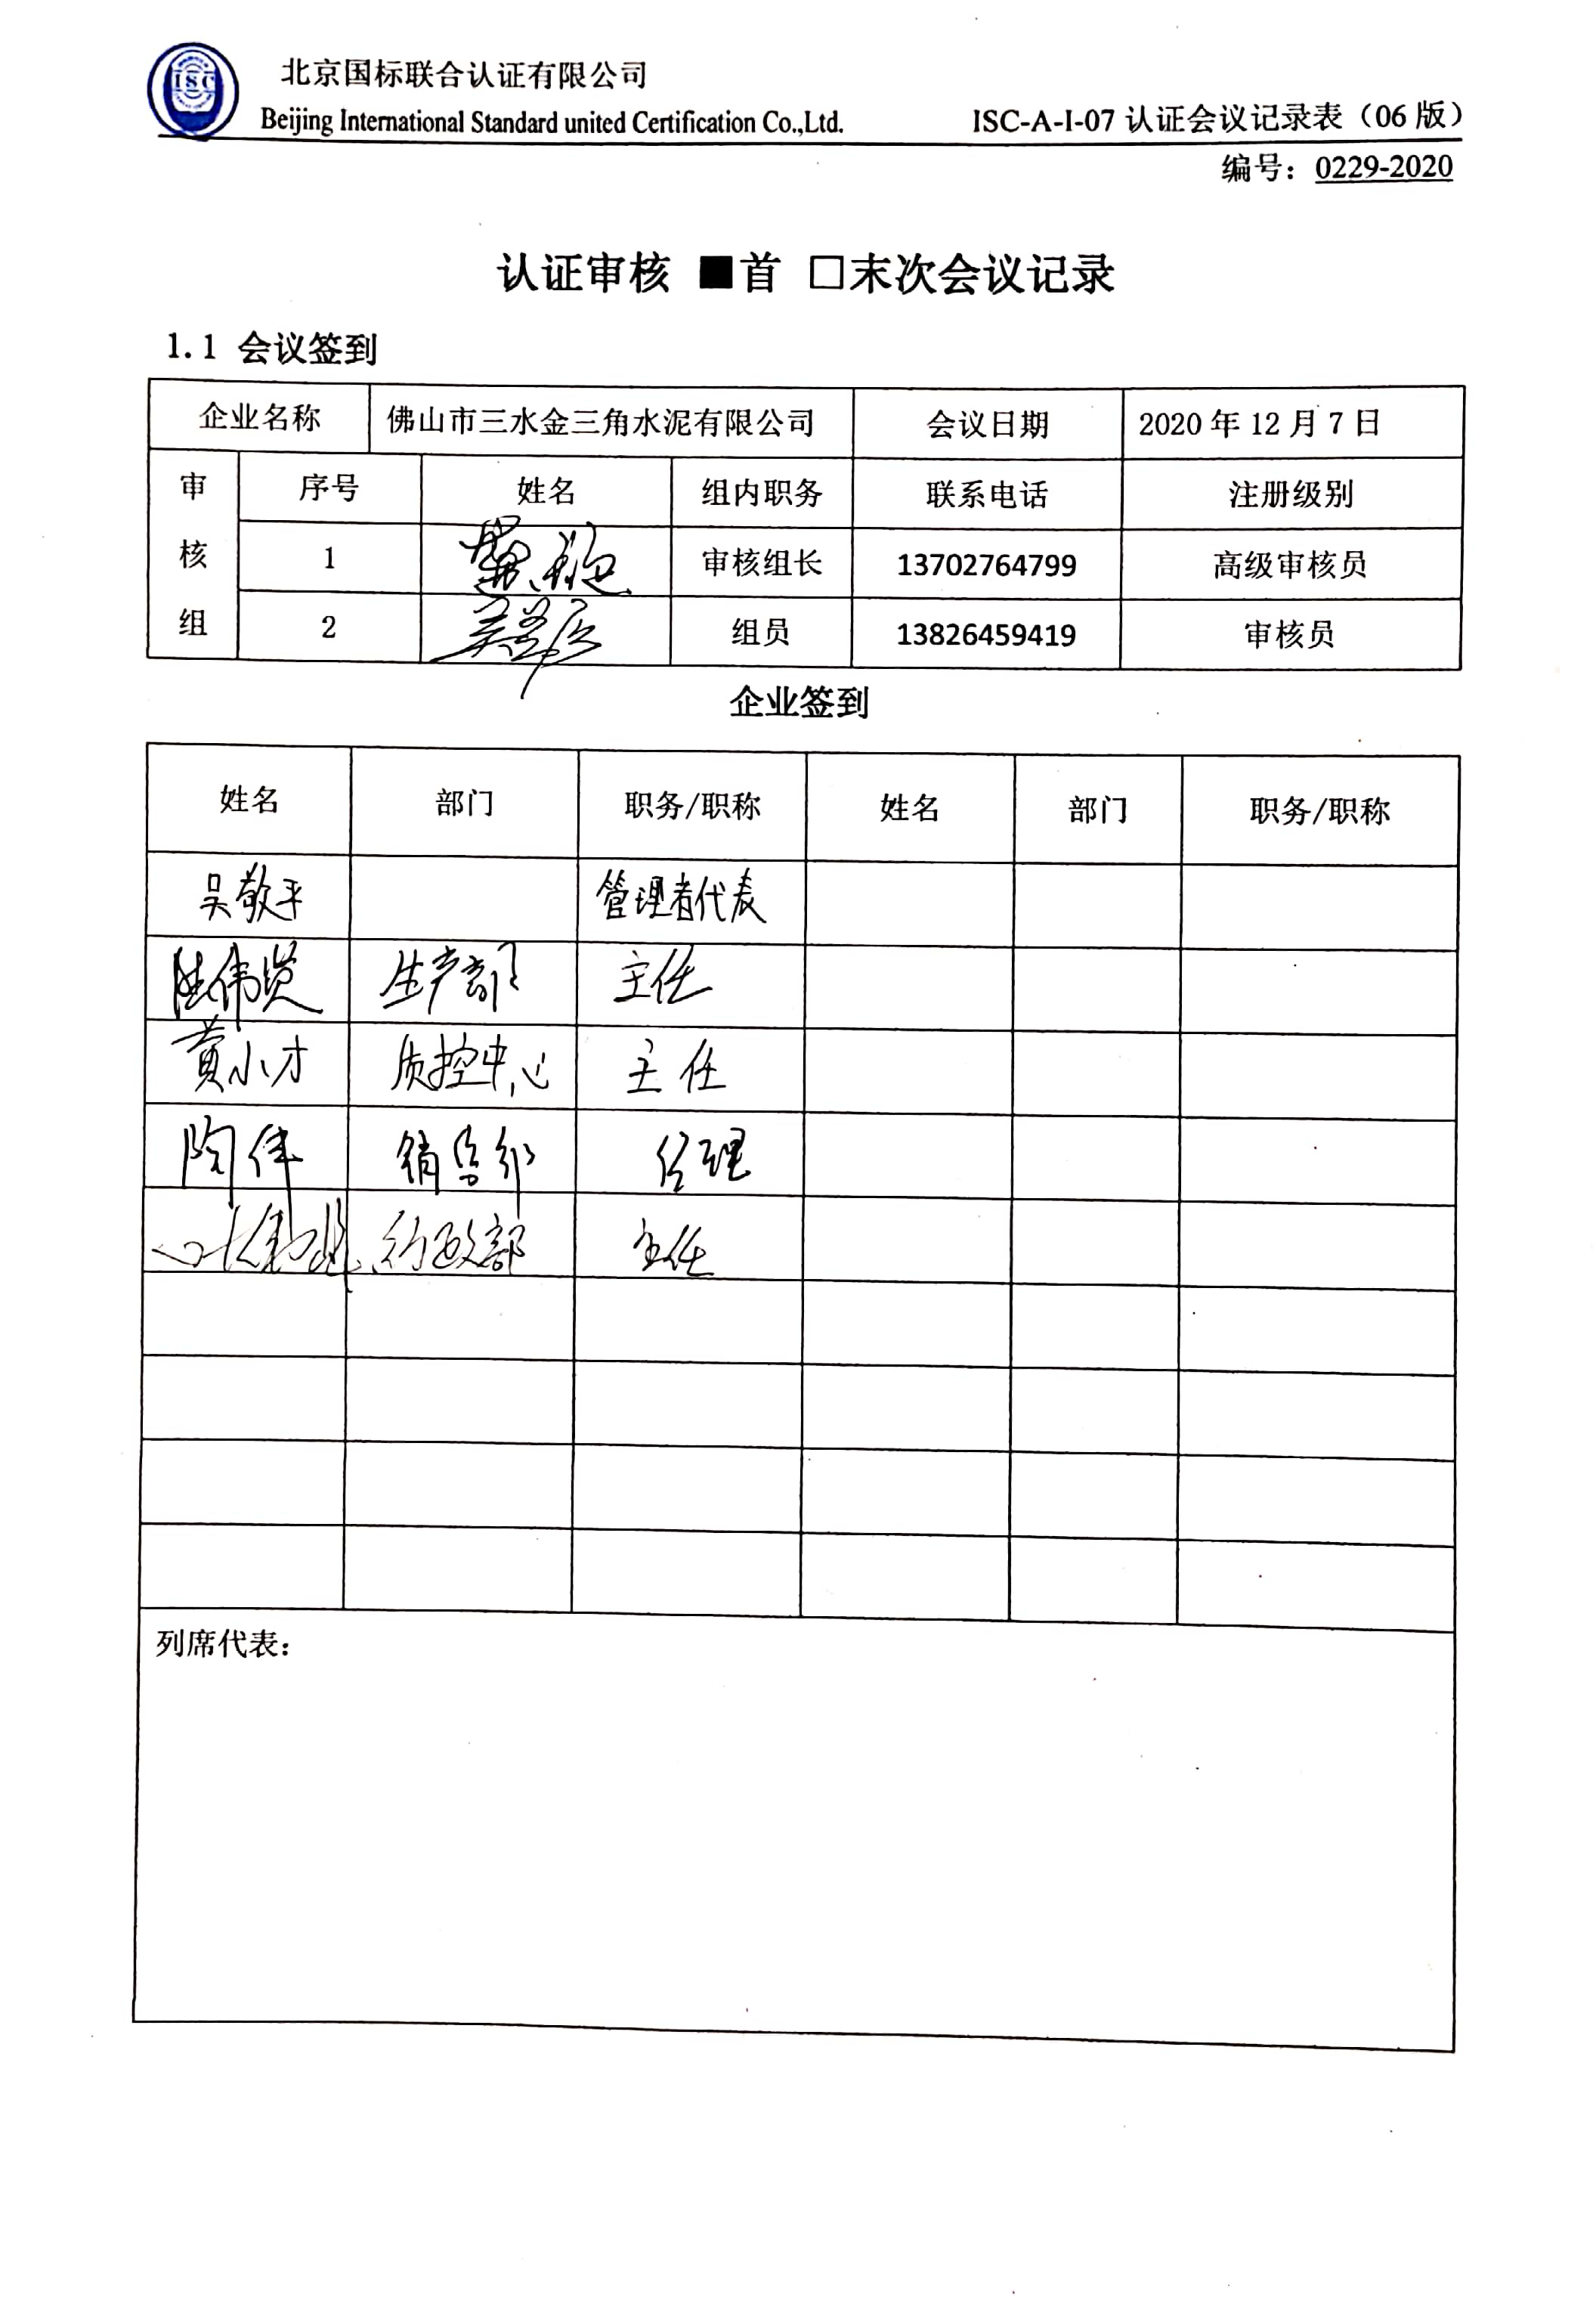 ISC
北京国标联合认证有限公司
Beijing International Standard united Certification Co.,Ltd.
ISC-A-I-07 认证会议记录表（06 版）
编号：0229-2020
认证审核 ■首 □末次会议记录
1.1 会议签到
企业名称 佛山市三水金三角水泥有限公司 会议日期 2020 年 12 月 7 日
审核组 序号 姓名 组内职务 联系电话 注册级别
1 审核组长 13702764799 高级审核员
2 组员 13826459419 审核员
企业签到
姓名 部门 职务/职称 姓名 部门 职务/职称
吴敬平 管理者代表
陆伟贤 生产部 主任
黄小才 质控中心 主任
陶伟 销售部 经理
行政部 主任
列席代表：